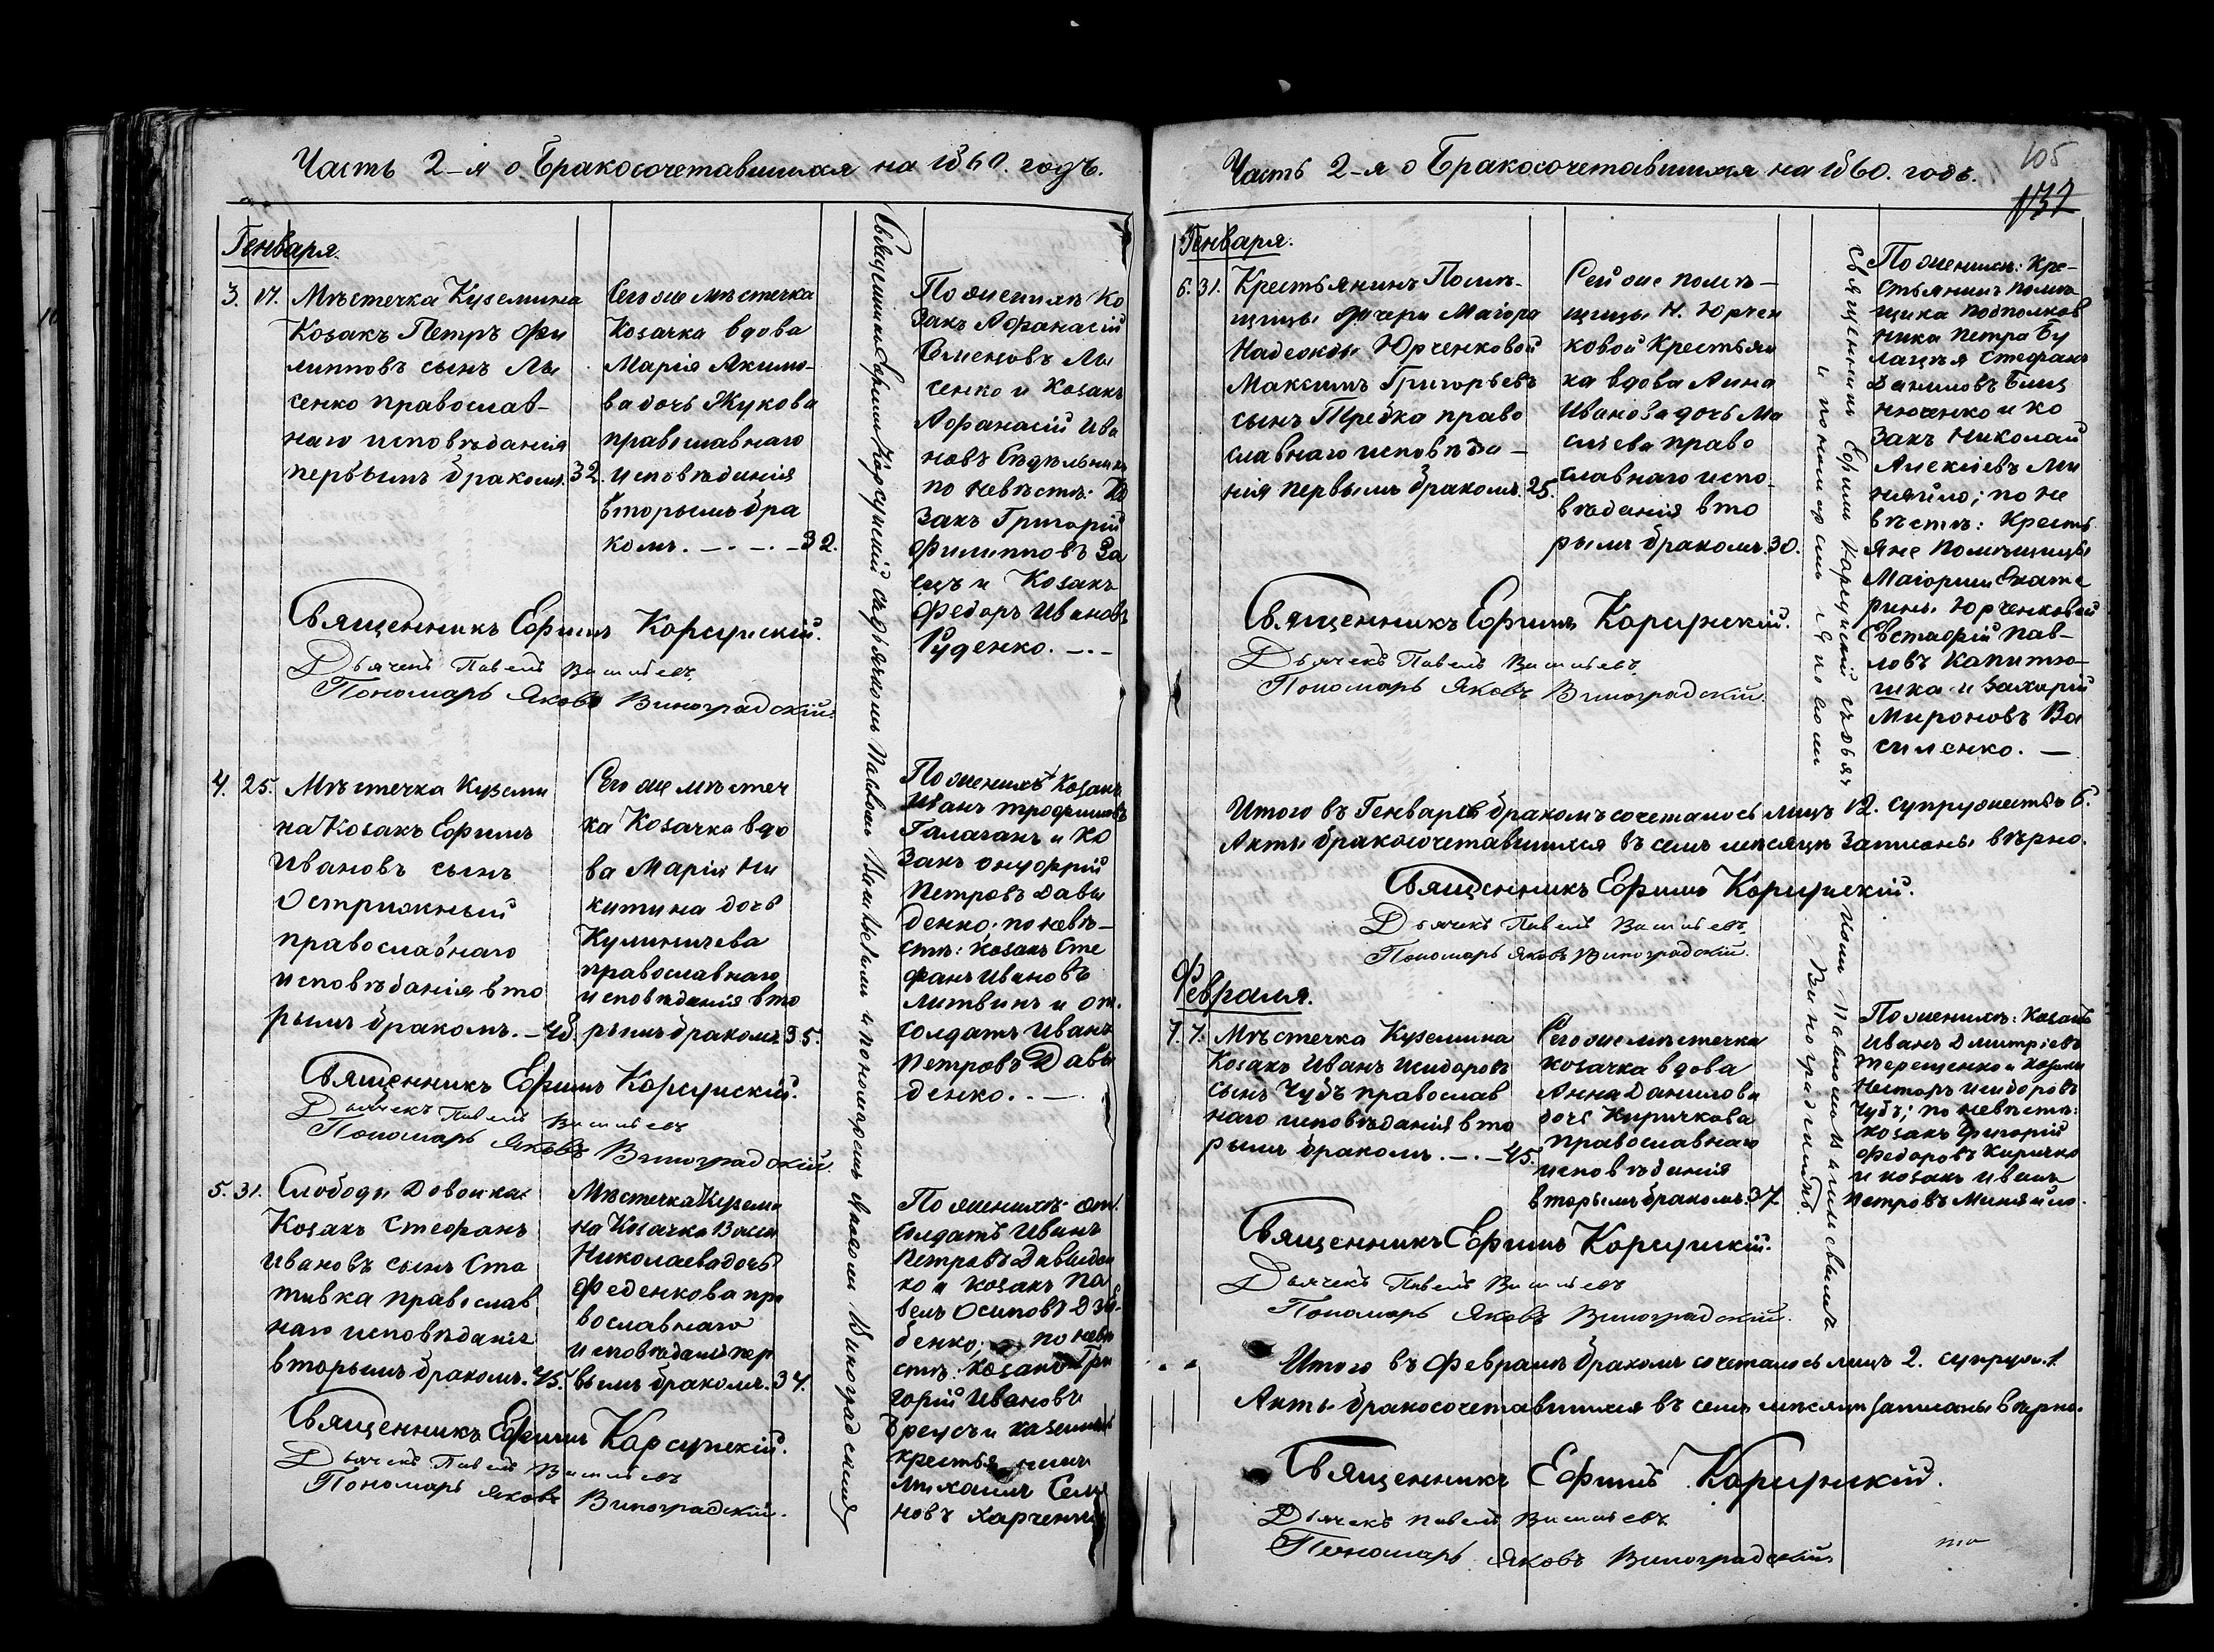 Часть 2-я о Бракосочетавшихся на 1860. годъ.
Генваря.
3. 17. Мѣстечка Куземина
Козакъ Петръ Фи
липповъ сынъ Лы
сенко православ-
наго исповѣданія
первымъ бракомъ. 32.
Сего же мѣстечка
Козачка вдова
Марія Акимо-
ва дочь Жукова
православнаго
исповѣданія
вторымъ бра
комъ. – . – . – 32.
По женихѣ Ко
закъ Афанасій
Семеновъ Лы
сенко и Козакъ
Афанасій Ива
новъ
по невѣстѣ: Ко
закъ Григорій
Филипповъ За
ецъ и Козакъ
Федоръ Ивановъ
Руденко. – . –
Священникъ Ефимъ Корсунскій.
Дьячекъ Павелъ Васильевъ
Пономарь Яковъ Виноградскій.
4. 25. Мѣстечка Куземи
на Козакъ Ефимъ
Ивановъ сынъ
Острижный
православнаго
исповѣданія вто
рымъ бракомъ. – 48.
Сего же мѣстеч
ка Козачка вдо
ва Марія Ни
китина дочь
Кулиничева
православнаго
исповѣданія вто
рымъ бракомъ. 35.
По женихѣ Козакъ
Иванъ Трофимовъ
Галаганъ и Ко
закъ Онуфрій
Петровъ Давы
денко; по невѣ-
стѣ: Козакъ Сте
фанъ Ивановъ
Литвинъ и от.
солдатъ Иванъ
Петровъ Давы
денко. . –
Священникъ Ефимъ Корсунскій.
Дьячекъ Павелъ Васильевъ
Пономарь Яковъ Виноградскій.
5. 31. Слободы
Козакъ Стефанъ
Ивановъ сынъ Ста
тивка православ
наго исповѣданія
вторымъ бракомъ. 45.
Мѣстечка Куземи
на Козачка
Николаева дочь
Феденкова пра
вославнаго
исповѣданія пер
вымъ бракомъ. 34.
По женихѣ – от.
солдатъ Иванъ
Петровъ Давыден
ко и козакъ Па
велъ Осиповъ
денко; по невѣ
стѣ: козакъ Гри
горій Ивановъ
и казенный
крестьянинъ
Михаилъ Семе
новъ Харченко
Священникъ Ефимъ Корсунскій.
Дьячекъ Павелъ Васильевъ
Пономарь Яковъ Виноградскій.
Священникъ Ефимъ Корсунскій съ дьячкомъ Павломъ Васильевымъ и пономаремъ Яковомъ Виноградскимъ
105
137
Часть 2-я о Бракосочетавшихся на 1860. годъ.
Генваря.
6. 31. Крестьянинъ Помѣ-
щицы Дочери Маіора
Надежды Юрченковой
Максимъ Григорьевъ
сынъ право
славнаго исповѣда –
нія первымъ бракомъ. 25.
Сей же помѣ –
щицы Н. Юрчен
ковой Крестьян
ка вдова Анна
Иванова дочь
право
славнаго испо-
вѣданія вто
рымъ бракомъ. 30.
По женихѣ: Кре-
стьянинъ помѣ
щика Подполков
ника Петра Бу
Стефанъ
Даниловъ
и ко
закъ Николай
Алексіевъ Ми
няйло; по не
вѣстѣ: Кресть
яне Помѣщицы
Маіорши Екате
рины Юрченковой
Евстафій Пав-
ловъ Капитю-
шка и Захарій
Мироновъ Ва
силенко. –
Священникъ Ефимъ Корсунскій.
Дьячекъ Павелъ Васильевъ
Пономарь Яковъ Виноградскій.
Итого въ Генварѣ бракомъ сочеталось лицъ 12. супружествъ 6.
Акты бракосочетавшихся въ семъ мѣсяцѣ записаны вѣрно.
Священникъ Ефимъ Корсунскій.
Дьячекъ Павелъ Васильевъ
Пономарь Яковъ Виноградскій.
Февраля.
7. 7. Мѣстечка Куземина
Козакъ Иванъ Исидоровъ
сынъ Чубъ православ
наго исповѣданія вто
рымъ бракомъ. – . – 45.
Сего же мѣстечка
козачка вдова
Анна Данилова
дочь Киричкова
православнаго
исповѣданія
вторымъ бракомъ. 37.
По женихѣ: Козакъ
Иванъ Дмитріевъ
Терещенко и Козакъ
Несторъ Исидоровъ
Чубъ; по невѣстѣ:
козакъ Григорій
Федоровъ Киричко
и козакъ Иванъ
Петровъ Миняйло.
Священникъ Ефимъ Корсунскій.
Дьячекъ Павелъ Васильевъ
Пономарь Яковъ Виноградскій.
Священникъ Ефимъ Корсунскій съ дьяч
комъ Павломъ Васильевымъ
и пономаремъ Яковомъ
Виноградскимъ.
Итого въ Февралѣ бракомъ сочеталось лицъ 2. супруж. 1.
Акты бракосочетавшихся въ семъ мѣсяцѣ записаны вѣрно.
Священникъ Ефимъ Корсунскій.
Дьячекъ Павелъ Васильевъ
Пономарь Яковъ Виноградскій